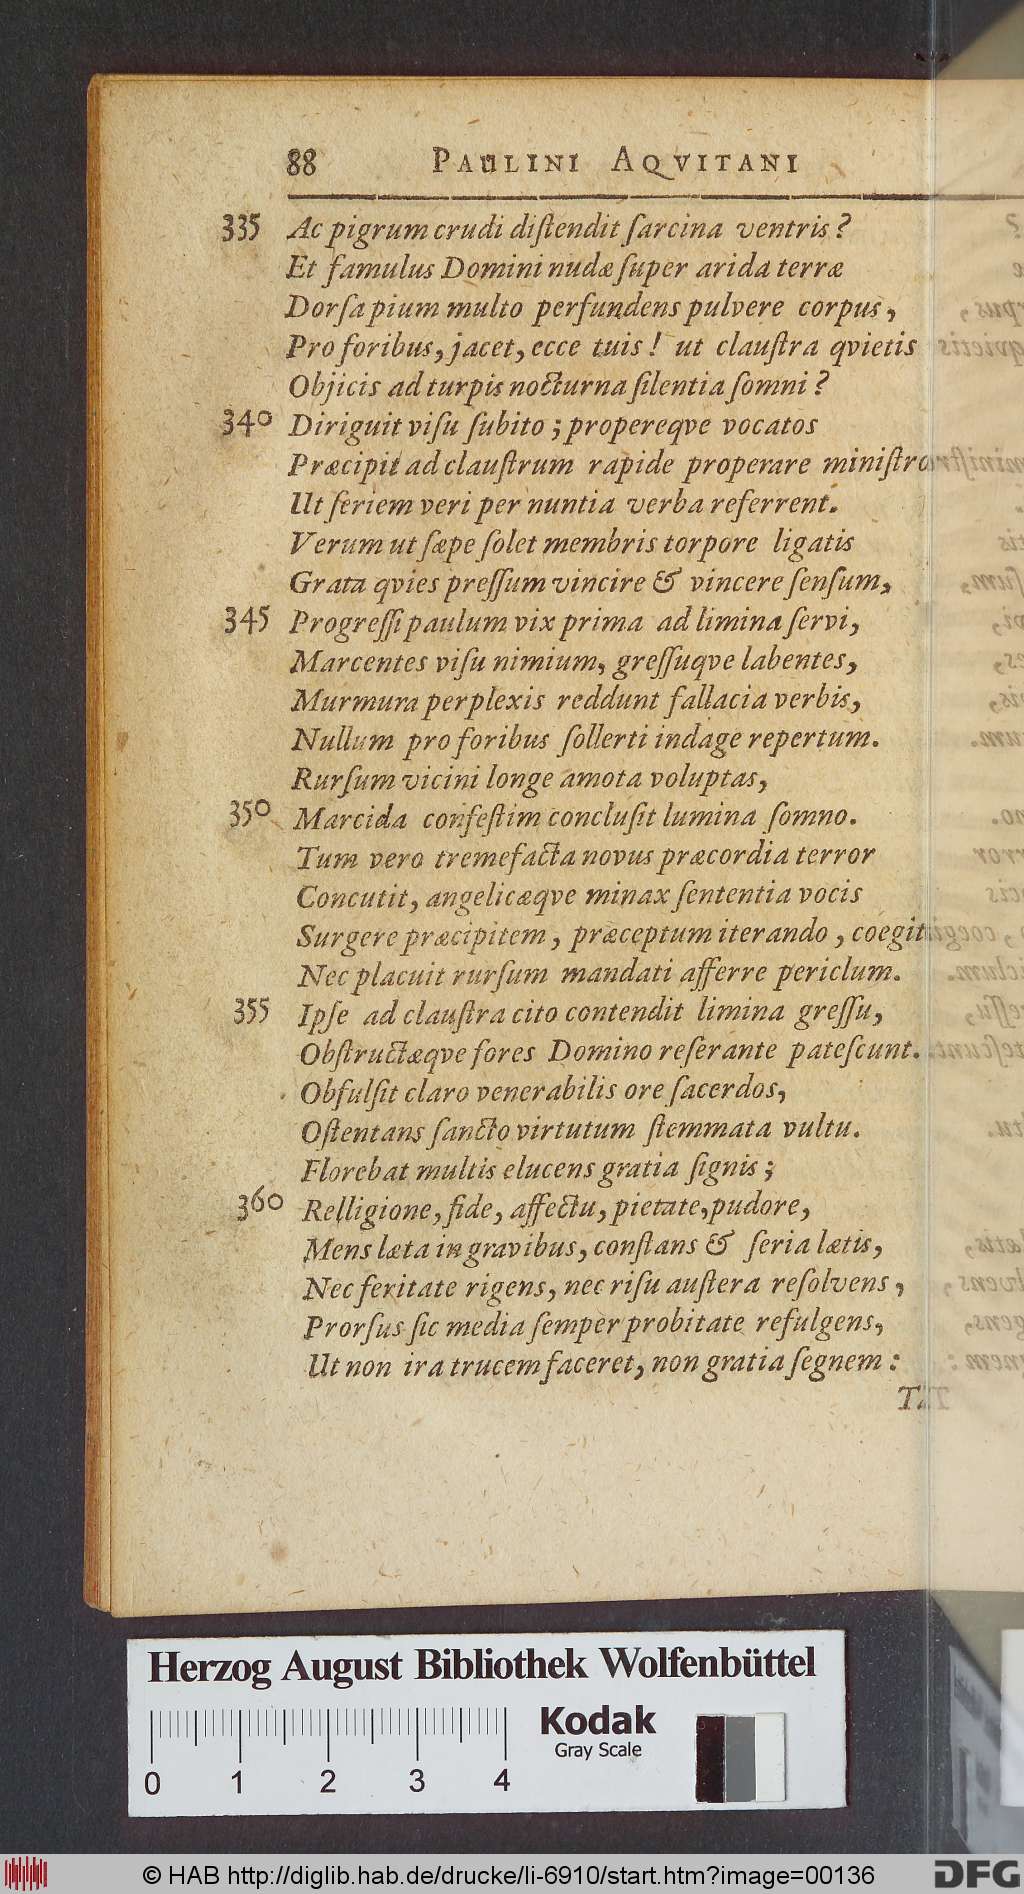 88 PAULINI AQVITANI
335 Ac pigrum crudi diſtendit ſarcina ventris?
Et famulus Domini nudæ ſuper arida terræ
Dorſa pium multo perfundens pulvere corpus,
Pro foribus, jacet, ecce tuis! ut clauſtra qvietis
Objicis ad turpis nocturna ſilentia ſomni?
340 Diriguit viſu ſubito; propereqve vocatos
Præcipit ad clauſtrum rapide properare miniſtros
Ut ſeriem veri per nuntia verba referrent.
Verum ut ſæpe ſolet membris torpore ligatis
Grata qvies preſſum vincire & vincere ſenſum,
345 Progreſſi paulum vix prima ad limina ſervi,
Marcentes viſu nimium, greſſuqve labentes,
Murmura perplexis reddunt fallacia verbis,
Nullum pro foribus ſollerti indage repertum.
Rurſum vicini longe amota voluptas,
350 Marcida confeſtim concluſit lumina ſomno.
Tum vero tremefacta novus præcordia terror
Concutit, angelicæqve minax ſententia vocis
Surgere præcipitem, præceptum iterando, coegit
Nec placuit rurſum mandati afferre periclum.
355 Ipſe ad clauſtra cito contendit limina greſſu,
Obſtructæqve fores Domino reſerante pateſcunt.
Obfulſit claro venerabilis ore ſacerdos,
Oſtentans ſancto virtutum ſtemmata vultu.
Florebat multis elucens gratia ſignis;
360 Relligione, fide, affectu, pietate, pudore,
Mens læta in gravibus, conſtans & ſeria lætis,
Nec feritate rigens, nec riſu auſtera reſolvens,
Prorſus ſic media ſemper probitate refulgens,
Ut non ira trucem faceret, non gratia ſegnem:
Herzog August Bibliothek Wolfenbüttel
Kodak
Gray Scale
0 1 2 3 4
© HAB http://diglib.hab.de/drucke/li-6910/start.htm?image=00136
DFG